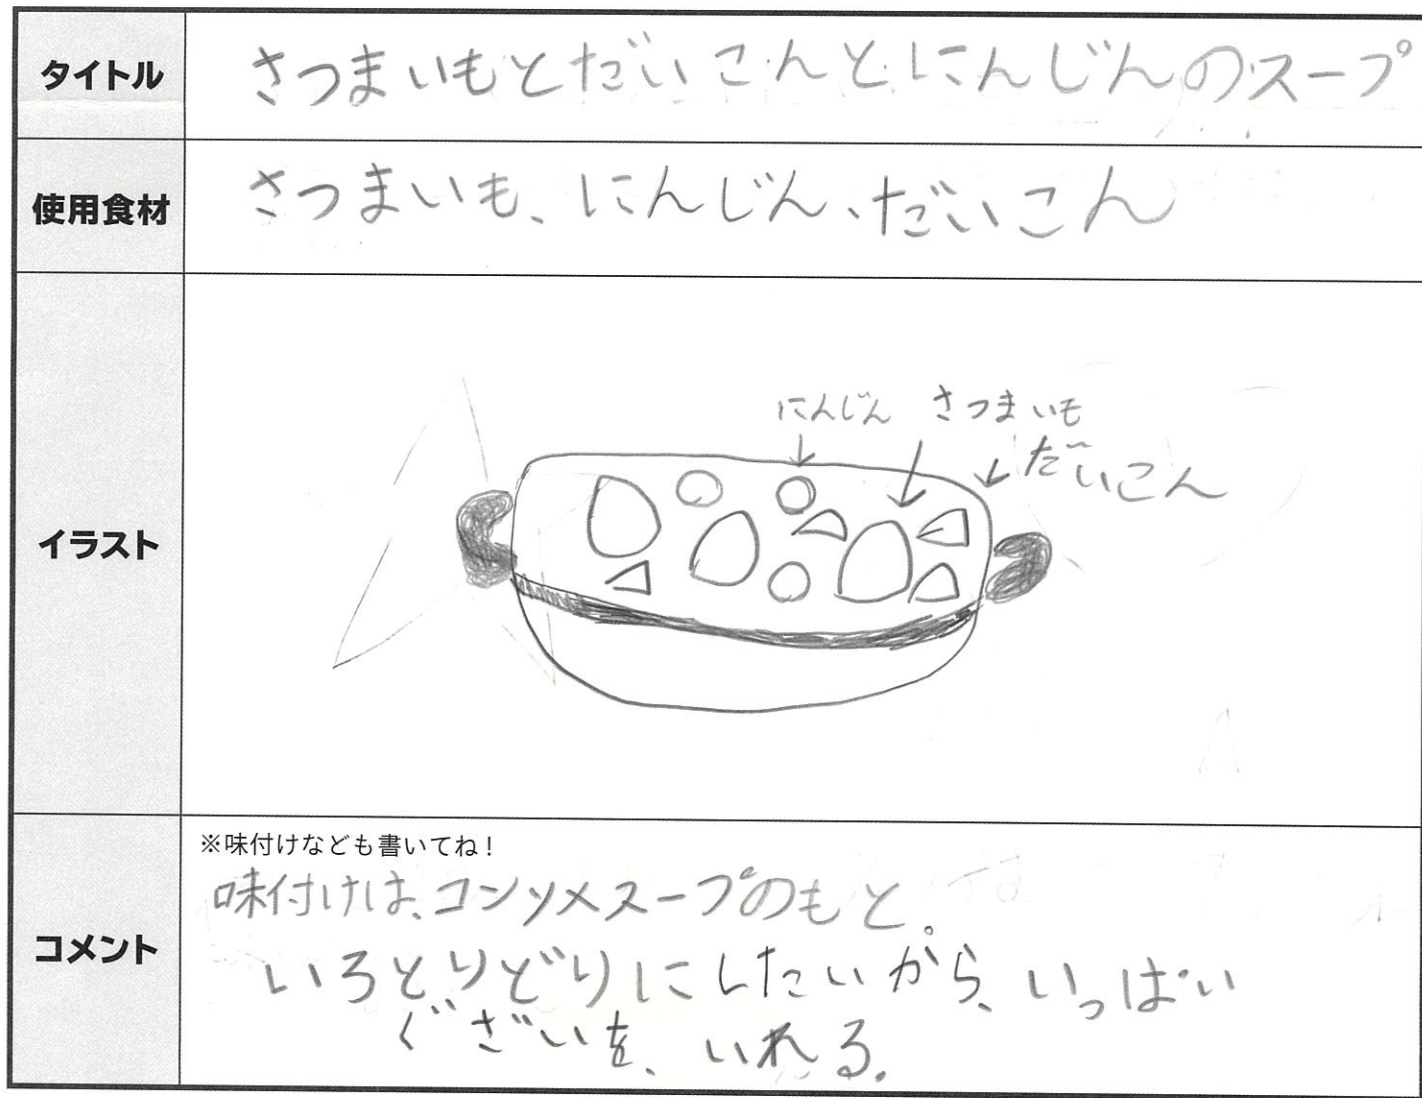 タイトル
さつまいもとだいこんとにんじんのスープ
使用食材
さつまいも、にんじん、だいこん
イラスト
にんじん さつまいも
だいこん
コメント
※味付けなども書いてね!
味付けは、コンソメスープのもと。
いろとりどりにしたいから、いっぱい
ぐざいを、いれる。